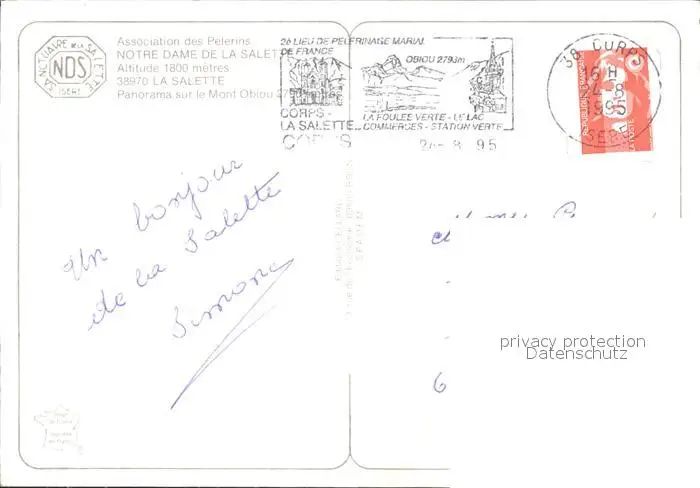 SANCTUAIRE DE LA SALETTE
NDS
ISÈRE
Association des Pelerins
NOTRE DAME DE LA SALETTE
Altitude 1800 mètres
38970 LA SALETTE
Panorama sur le Mont Obiou
2e LIEU DE PELERINAGE MARIAL
DE FRANCE
OBIOU 2793m
CORPS -
LA SALETTE
LA FOULEE VERTE - LE LAC
COMMERCES - STATION VERTE
CORPS
24-8 95
38 CORPS
16H
24-8
1995
ISERE
LA POSTE
Un bonjour
de la Salette
Simone
privacy protection
Datenschutz
6